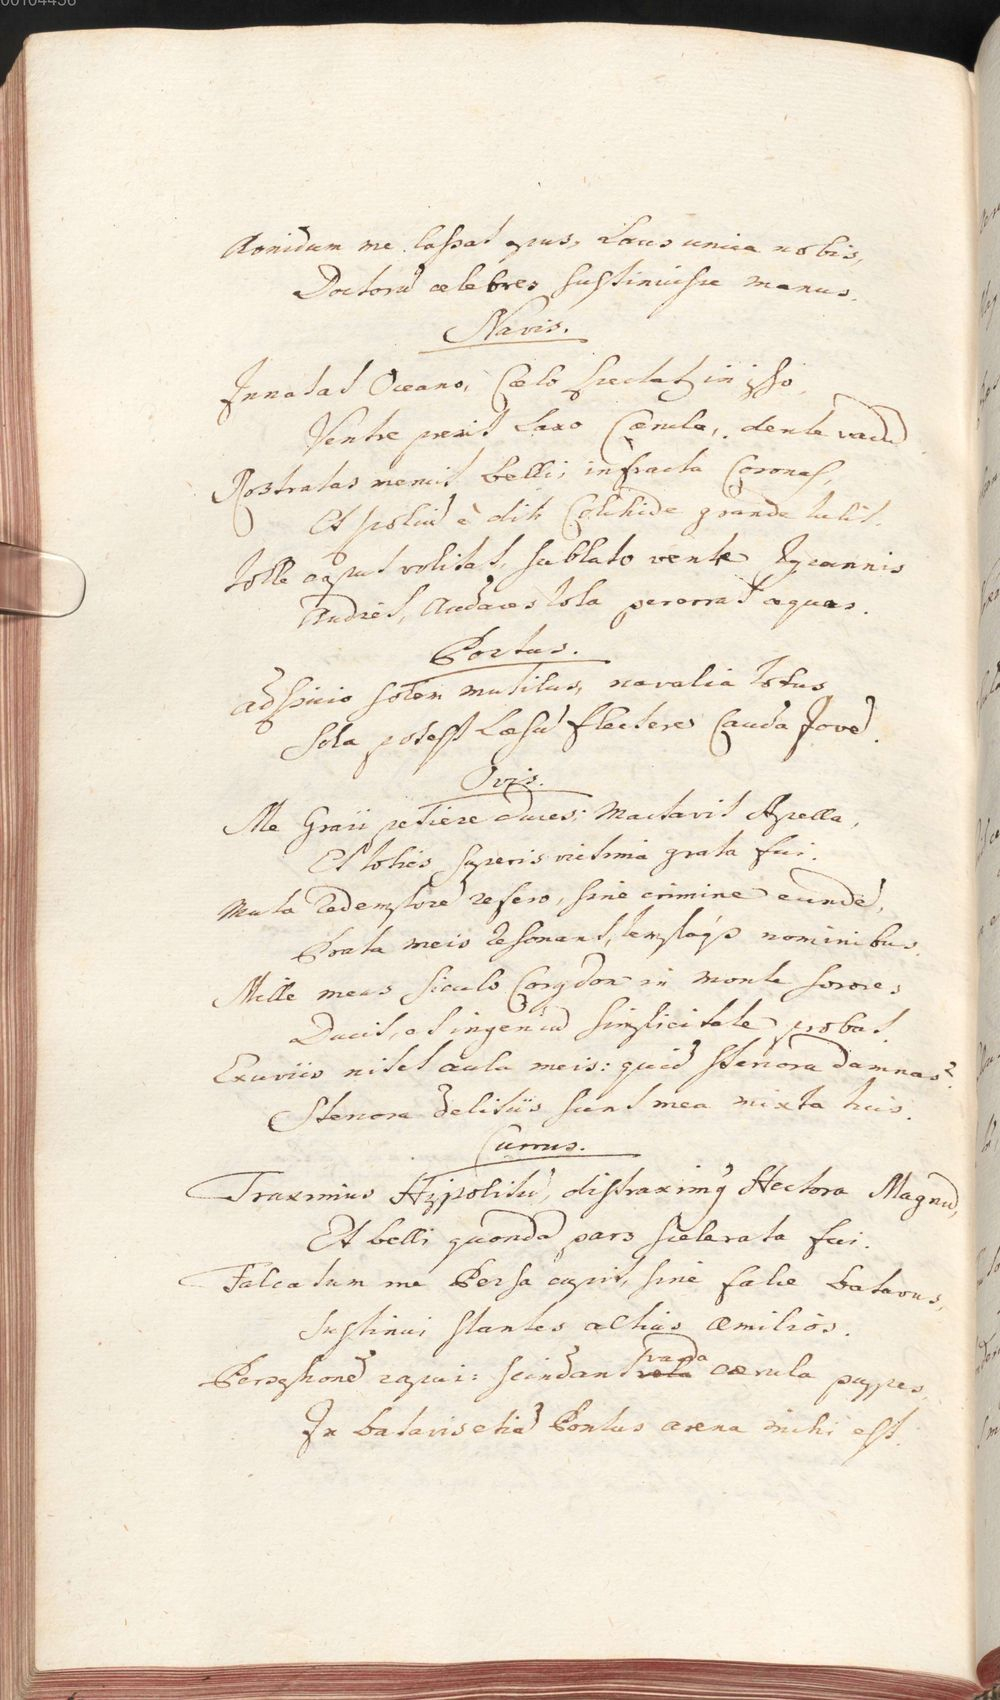 00104456
Aonidum me lassat opus, Laus unica nobis,
Doctorū celebres sustinuisse manus.
Navis.
Innatat Oceano, Cælo spectatq in ipso,
Ventre premit Laxo Cærula, dente vadū
Rostratas meruit belli, infracta Coronas,
Et spoliū è diti Colchide grande tulit.
Tolle caput volitat, sublato ventre Tyrannis
Audiet, Audaces tola pererrat aquas.
Portus.
adspicio solem mutilus, navalia totus
Sola potest Læsū flectere Cauda Jovē.
Ovis.
Me Graii petiere duces; Mactavit Apella,
Et toties superis victima grata fui.
Muta Redemptorē refero, sine crimine eundē,
Prata meis resonant, templaq3 nominibus.
Mille meas siculo Corydon in monte sorores
Ducit, et ingeniū simplicitate probat.
Exuviis nitet aula meis: quid stercora damnas?
Stercora delitiis sunt mea mixta tuis.
Currus.
Traximus Hyppolitū, distraximq Hectora Magnū,
Et belli quondā pars scelerata fui.
Falcatum me Persa cupit, sine falce batavus,
Sustinui stantes altius æmilios.
Persephonē rapui: scindant vela vada cærula puppes,
In batavis etiā Pontus arena mihi est.